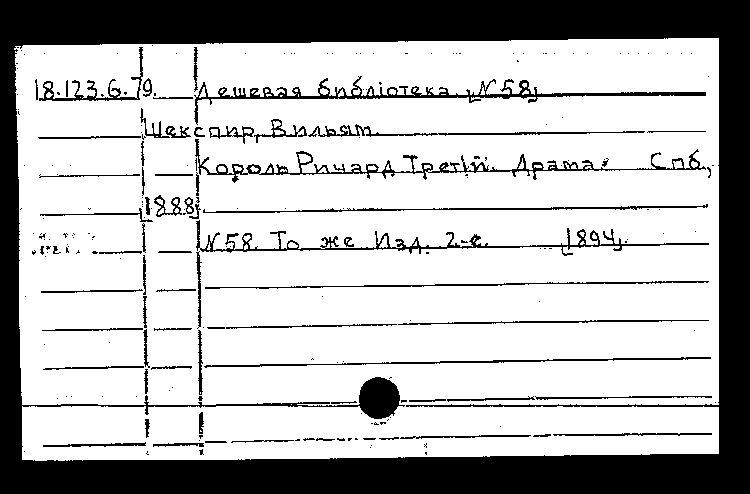 18.123.G.79. Дешевая библіотека. [№58]
Шекспир, Вильям.
Король Ричард Третій. Драма. Спб.,
[1888].
№58. То же Изд. 2-е. [1894].